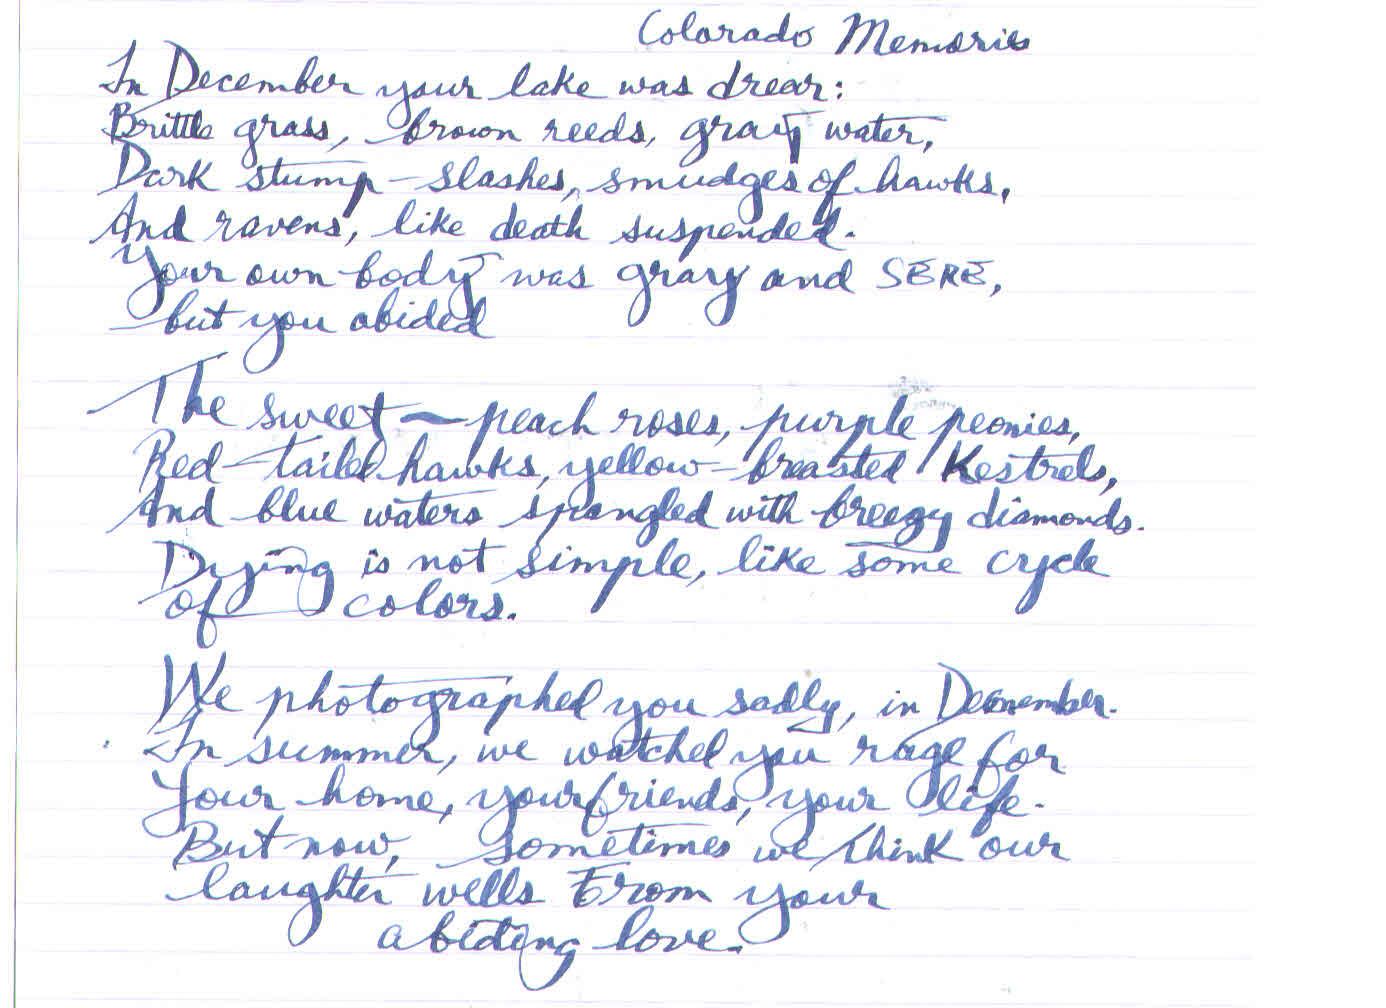 Colorado Memories
In December your lake was drear:
Brittle grass, brown reeds, gray water,
Dark stump-slashes, smudges of hawks,
And ravens, like death suspended.
Your own body was gray and SERE,
but you abided
The sweet - peach roses, purple peonies,
Red-tailed hawks, yellow-breasted Kestrels,
And blue waters spangled with breezy diamonds.
Dying is not simple, like some cycle
of colors.
We photographed you sadly, in December.
In summer, we watched you rage for
Your home, your friends, your life.
But now, sometimes we think our
laughter wells From your
abiding love.